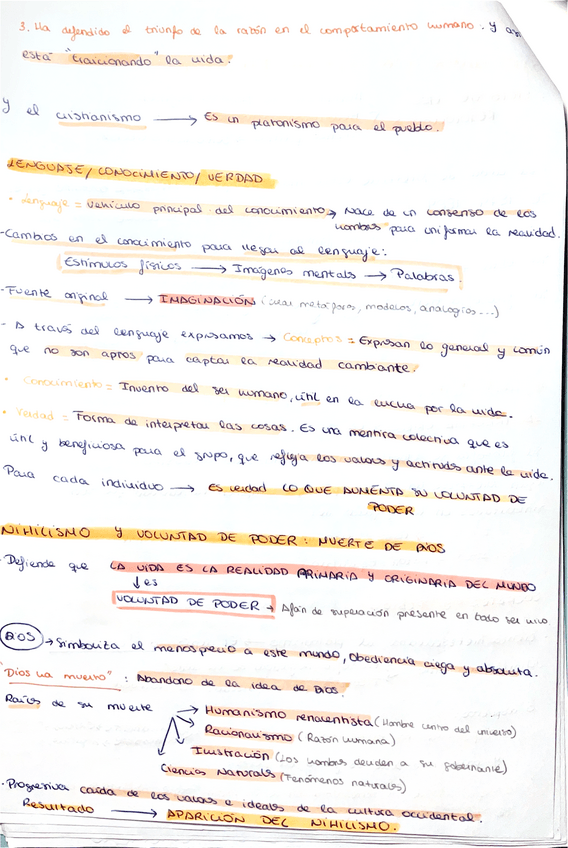 3. Ha defendido el triunfo de la razón en el comportamiento humano. y así
está "traicionando" la vida.
y el cristianismo → Es un platonismo para el pueblo.
LENGUAJE/CONOCIMIENTO/VERDAD
• Lenguaje = vehículo principal del conocimiento → Nace de un consenso de los
hombres para uniformar la realidad.
-Cambios en el conocimiento para llegar al lenguaje:
Estímulos físicos → Imágenes mentals → Palabras.
-Fuente original → IMAGINACIÓN (crear metáforas, modelos, analogías...)
- A través del lenguaje expresamos → Conceptos = Expresan lo general y común
que no son aptos para captar la realidad cambiante.
• Conocimiento = Invento del ser humano, útil en la lucha por la vida.
• Verdad = Forma de interpretar las cosas. Es una mentira colectiva que es
útil y beneficiosa para el grupo, que refleja los valores y actitudes ante la vida.
Para cada individuo → es verdad LO QUE AUMENTA SU VOLUNTAD DE
PODER
NIHILISMO Y VOLUNTAD DE PODER: MUERTE DE DIOS
- Defiende que LA VIDA ES LA REALIDAD PRIMARIA Y ORIGINARIA DEL MUNDO
↓ es
VOLUNTAD DE PODER → Afán de superación presente en todo ser vivo
DIOS → Simboliza el menosprecio a este mundo, obediencia ciega y absoluta.
"Dios ha muerto" : Abandono de la idea de Dios.
Raíces de su muerte → Humanismo renacentista (Hombre centro del universo)
Racionalismo (Razón humana)
Ilustración (Los hombres deciden a su gobernante)
Ciencias Naturals (Fenómenos naturales)
• Progresiva caída de los valores e ideales de la cultura occidental.
Resultado → APARICIÓN DEL NIHILISMO.